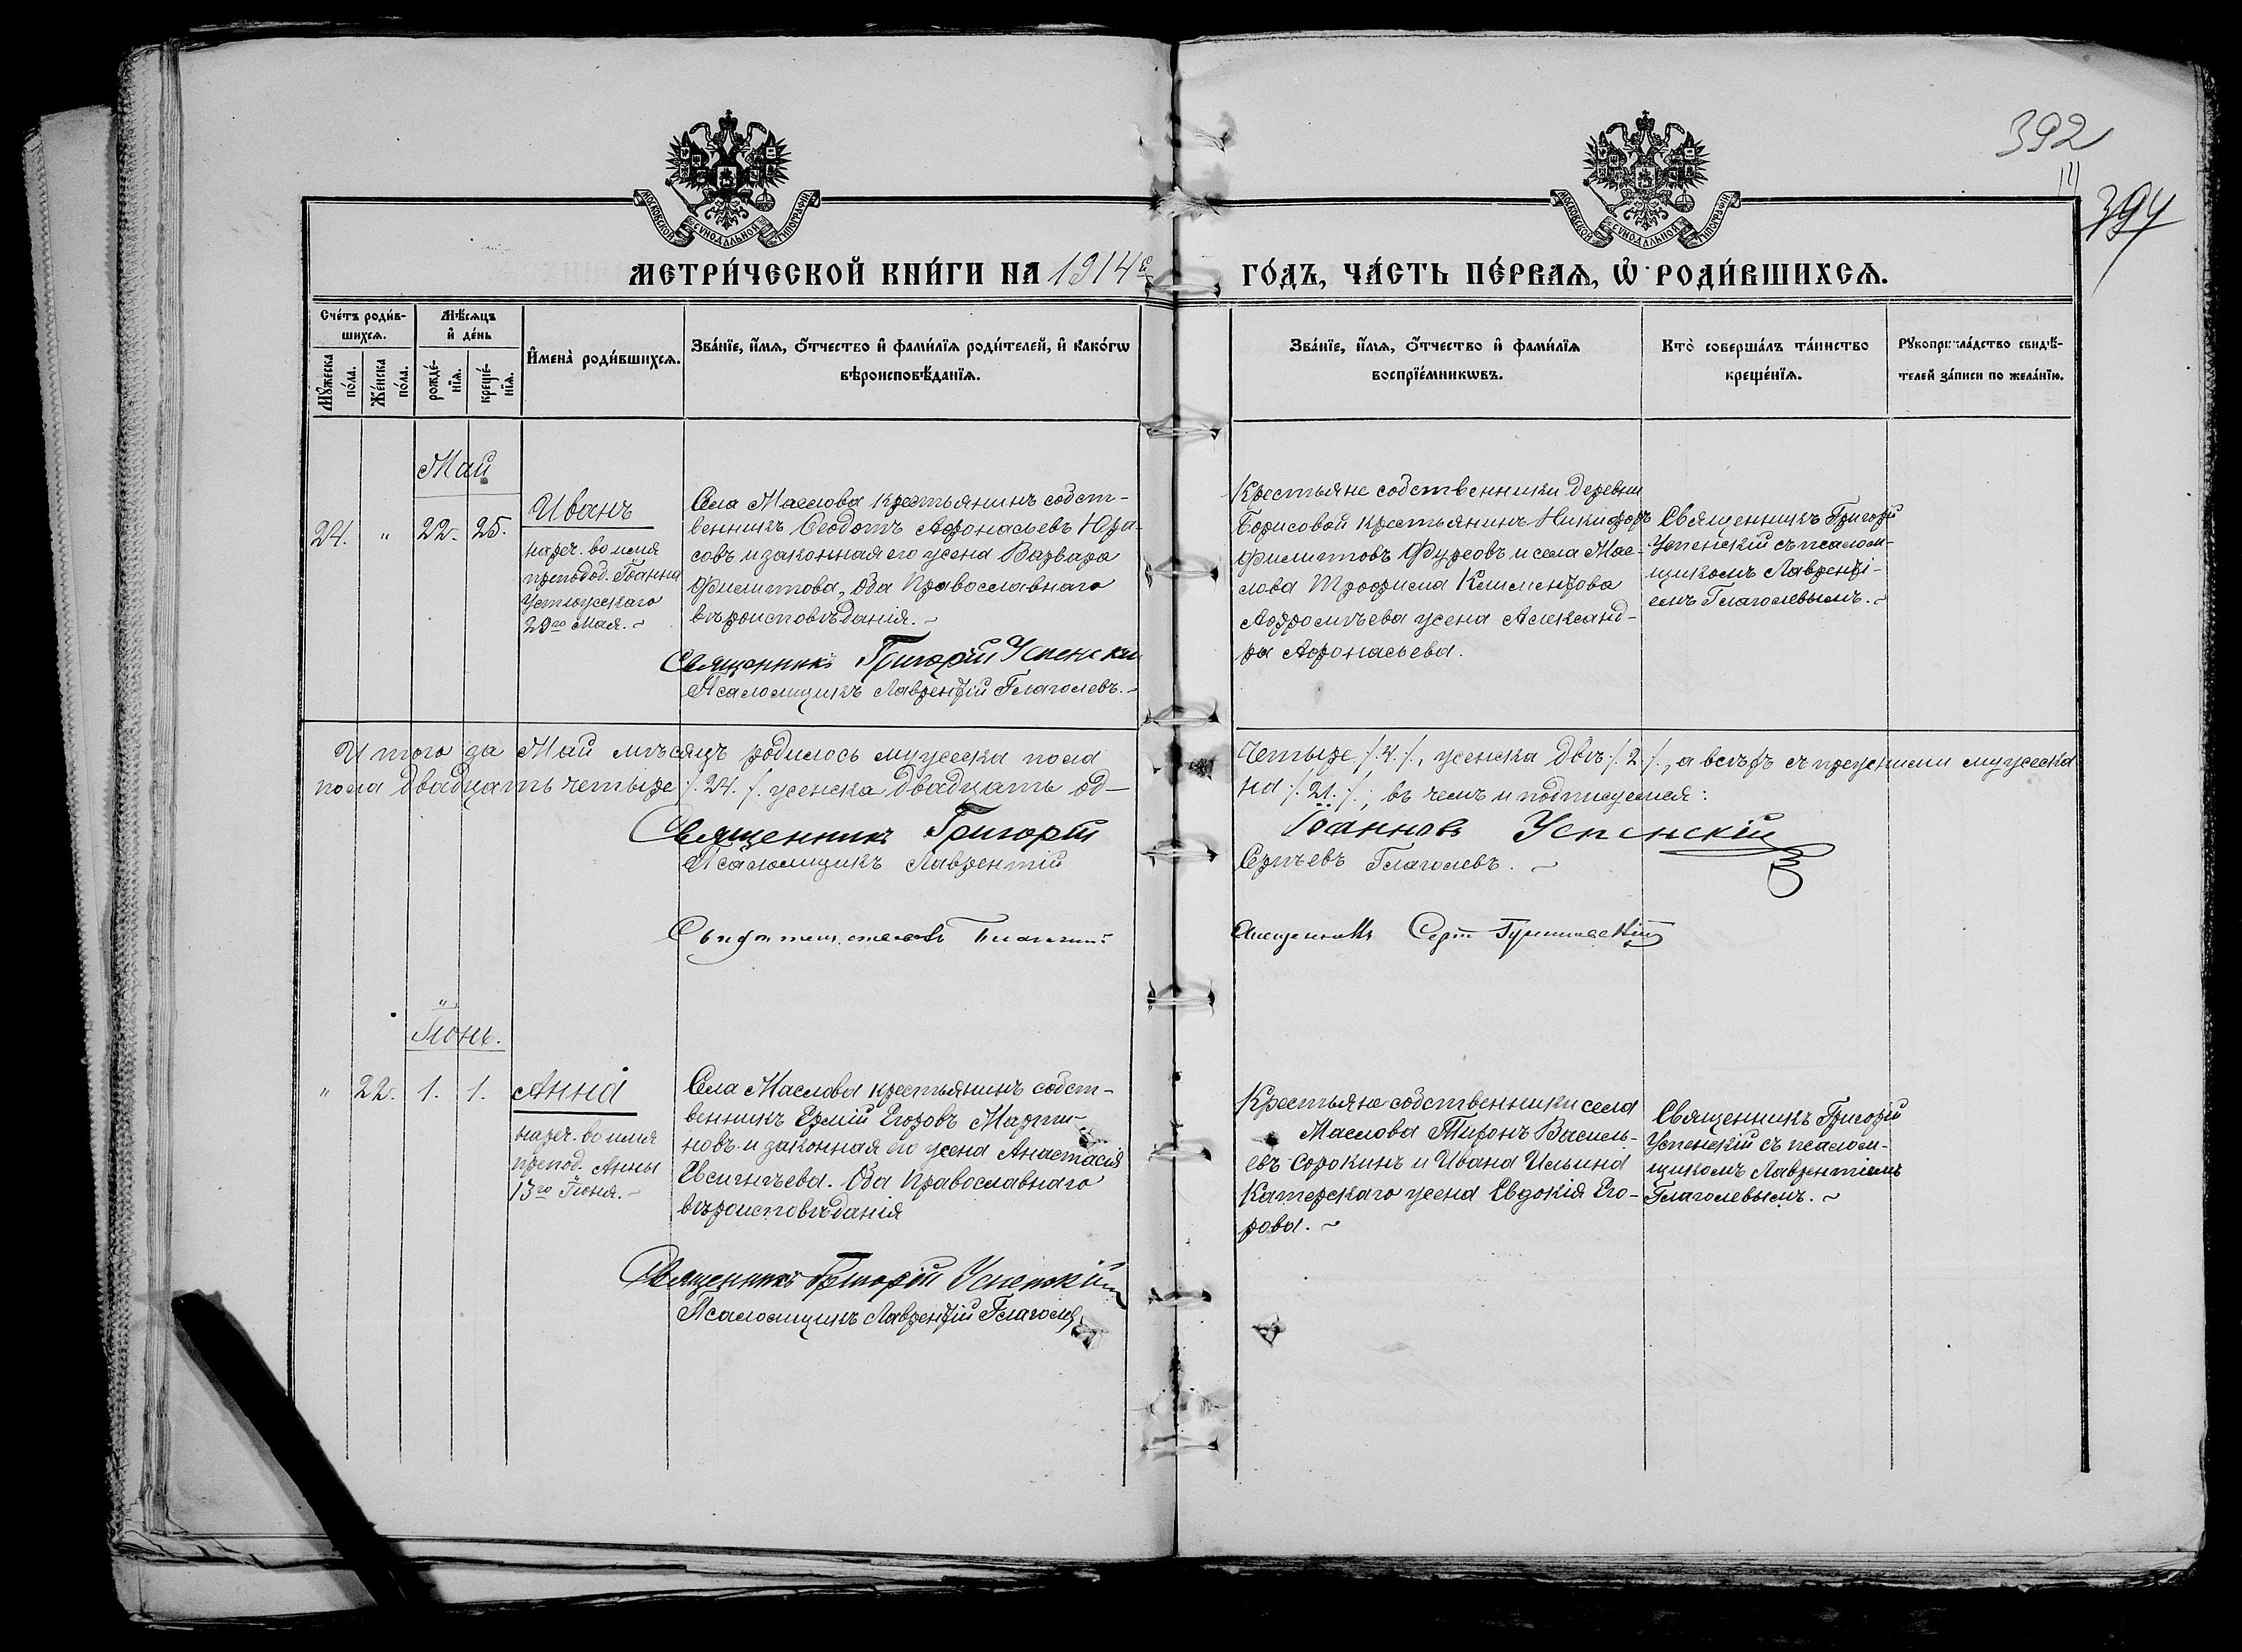 392
14
394
МОСКОВСКОЙ СѴНОДАЛЬНОЙ ТИПОГРАФІИ
МОСКОВСКОЙ СѴНОДАЛЬНОЙ ТИПОГРАФІИ
МЕТРИ́ЧЕСКОЙ КНИ́ГИ НА 1914 й
ГО́ДЪ, ЧА́СТЬ ПЕ́РВАѦ, Ѡ҆ РОДИ́ВШИХСѦ.
Сче́тъ роди́в-
шихсѧ.
Мѣ́сѧцъ
и҆ де́нь
Мꙋ́жеска
по́ла.
Же́нска
по́ла.
рожде́-
нїѧ.
креще́-
нїѧ.
И҆мена̀ роди́вшихсѧ.
Зва́нїе, и҆́мѧ, ѻ҆́тчество и҆ фами́лїѧ роди́телей, и҆ како́гѡ
вѣроисповѣ́данїѧ.
Зва́нїе, и҆́мѧ, ѻ҆́тчество и҆ фами́лїѧ
воспрїе́мникѡвъ.
Кто̀ соверша́лъ та́инство
креще́нїѧ.
Рꙋкоприкла́дство свидѣ́-
телей за́писи по жела́нїю.
Май
24. " 22. 25.
Иванъ
нареч. во имя
преподоб. Іоанна
Устюжскаго
29го Мая.
Села Маслова крестьянинъ собст-
венникъ Ѳеодотъ Афонасьевъ Юра-
совъ и законная его жена Варвара
Филиппова, оба Православнаго
вѣроисповѣданія.
Священникъ Григорій Успенскій
Псаломщикъ Лаврентій Глаголевъ.
Крестьяне собственники деревни
Борисовой крестьянинъ Никифоръ
Филипповъ Фурсовъ и села Мас-
лова Трофима Климентова
жена Александ-
ра Афонасьева.
Священникъ Григорій
Успенскій съ псалом-
щикомъ Лаврентi-
емъ Глаголевымъ.
Итого за Май мѣсяцъ родилось мужеска пола
четыре /.4./, женска двѣ /.2./, а всѣхъ съ прежними мужеска
пола двадцать четыре /.24./ женска двадцать од-
на /.21./, въ чемъ и подписуемся:
Священникъ Григорій
Іоанновъ Успенскій
Псаломщикъ Лаврентій
Сергѣевъ Глаголевъ.
Священникъ
Іюнь.
" 22. 1. 1.
Анна
нареч. во имя
препод. Анны
13го Іюня.
Села Маслова крестьянинъ собст-
венникъ Ермій Егоровъ Марты-
новъ и законная его жена Анастасія
Евсигнѣева. Оба Православнаго
вѣроисповѣданія
Священникъ Григорій Успенскій
Псаломщикъ Лаврентій Глаголев
Крестьяне собственники села
Маслова Тихонъ Василь-
евъ Сорокинъ и Ивана Ильина
Катерскаго жена Евдокія Его-
рова.
Священникъ Григорій
Успенскій съ псалом-
щикомъ Лаврентіемъ
Глаголевымъ.